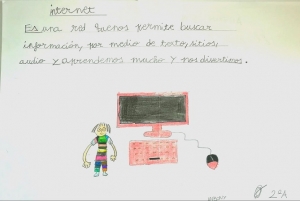 internet
Es una red quenos permite buscar
información, por medio de textos, sitios,
audio y aprendemos mucho y nos divertimos.
2ºA